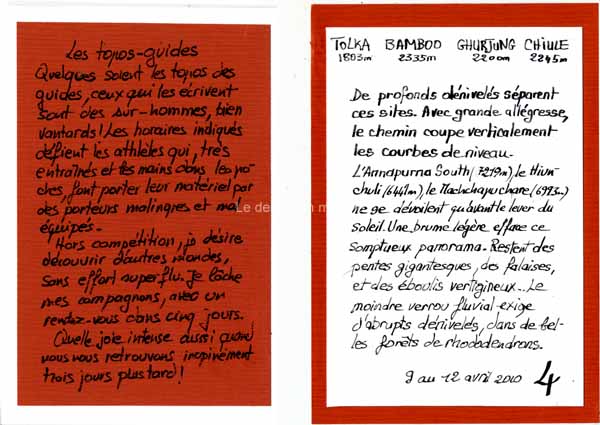 Les topos-guides
Quelques soient les topos des
guides, ceux qui les écrivent
sont des sur-hommes, bien
vantards! Les horaires indiqués
défient les athlètes qui, très
entraînés et les mains dans les po-
ches, font porter leur matériel par
des porteurs malingres et mal
équipés.
Hors compétition, je désire
découvrir d'autres mondes,
sans effort superflu. Je lâche
mes compagnons, avec un
rendez-vous dans cinq jours.
Quelle joie intense aussi quand
nous nous retrouvons inopinément
trois jours plus tard!
TOLKA BAMBOO GHURJUNG CHIULE
1803m 2335m 2200m 2245m
De profonds dénivelés séparent
ces sites. Avec grande allégresse,
le chemin coupe verticalement
les courbes de niveau.
L'Annapurna South (7219m), le Hiun-
chuli (6441m), le Machapuchare (6993m)
ne se dévoilent qu'avant le lever du
soleil. Une brume légère efface ce
somptueux panorama. Restent des
pentes gigantesques, des falaises,
et des éboulis vertigineux... Le
moindre verrou fluvial exige
d'abrupts dénivelés, dans de bel-
les forêts de rhododendrons.
9 au 12 avril 2010 4